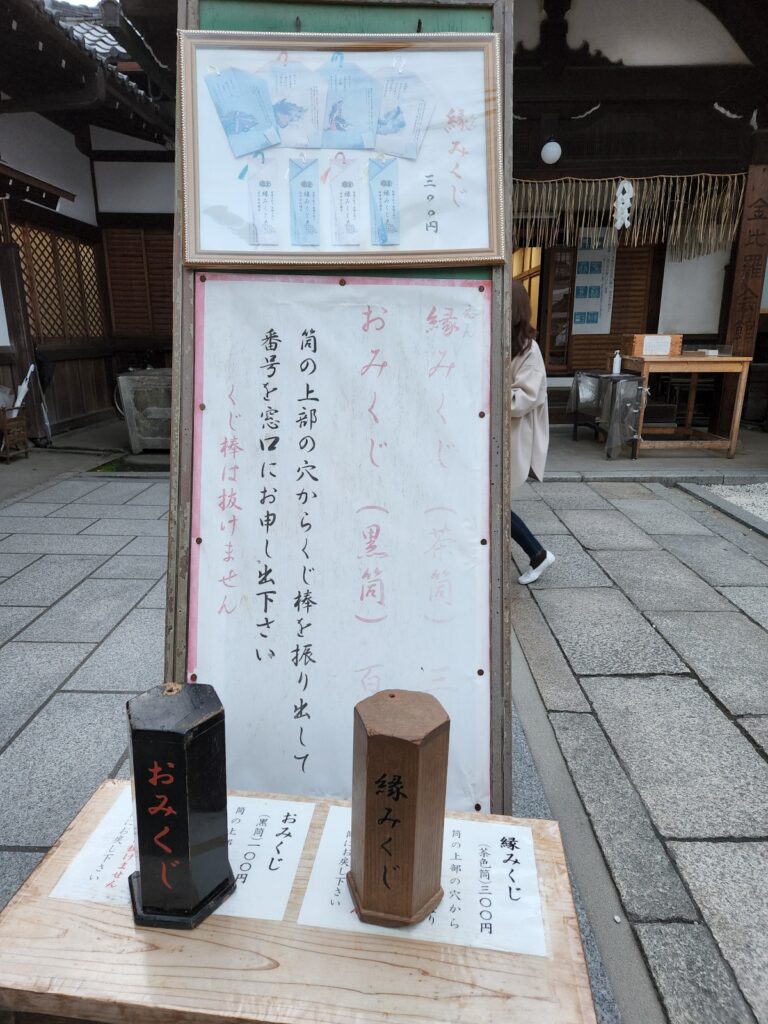 縁みくじ
三〇〇円
縁みくじ（茶筒）三
えん
おみくじ（黒筒）百
筒の上部の穴からくじ棒を振り出して
番号を窓口にお申し出下さい
くじ棒は抜けません
金比羅会館
おみくじ
縁みくじ
縁みくじ
（茶色筒）三〇〇円
筒の上部の穴から
おみくじ
（黒筒）一〇〇円
筒の上部
抜けません
お戻し下さい